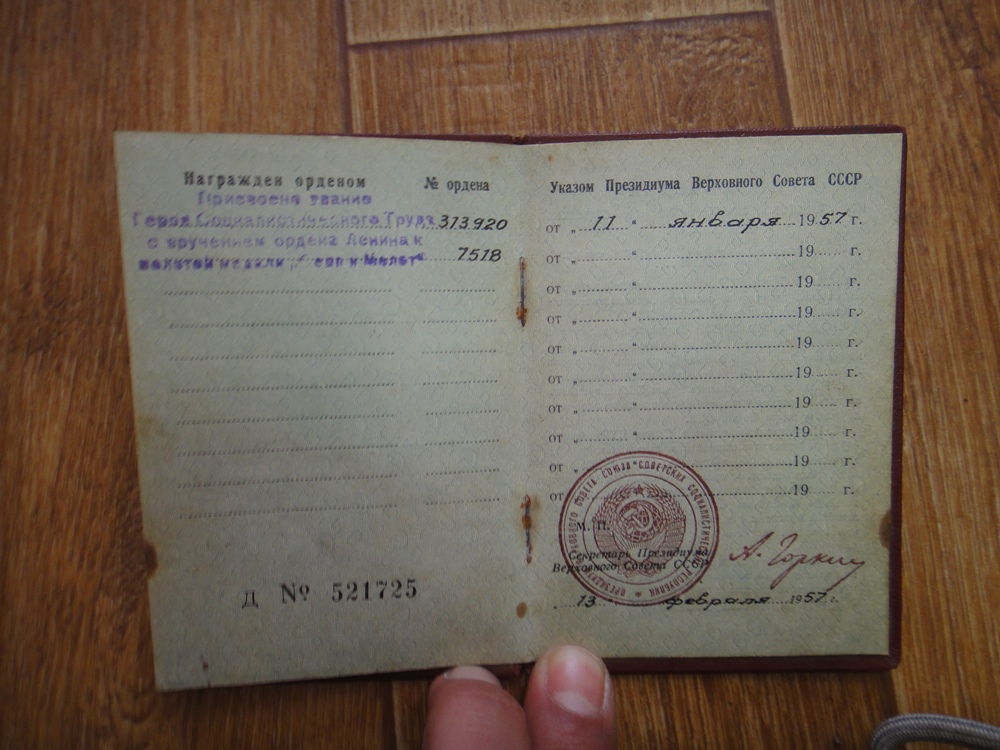 Награжден орденом № ордена
Присвоено звание
Героя Социалистического Труда 313920
с вручением ордена Ленина и
золотой медали „Серп и Молот“ 7518
Д № 521725
Указом Президиума Верховного Совета СССР
от „ 11 “ января 1957 г.
от „ “ 19 г.
от „ “ 19 г.
от „ “ 19 г.
от „ “ 19 г.
от „ “ 19 г.
от „ “ 19 г.
от „ “ 19 г.
от „ 19 г.
от 19 г.
ПРЕЗИДИУМ ВЕРХОВНОГО СОВЕТА СОЮЗА СОВЕТСКИХ СОЦИАЛИСТИЧЕСКИХ РЕСПУБЛИК
М. П.
Секретарь Президиума
Верховного Совета СССР
А. Горкин
„ 13 “ февраля 1957 г.